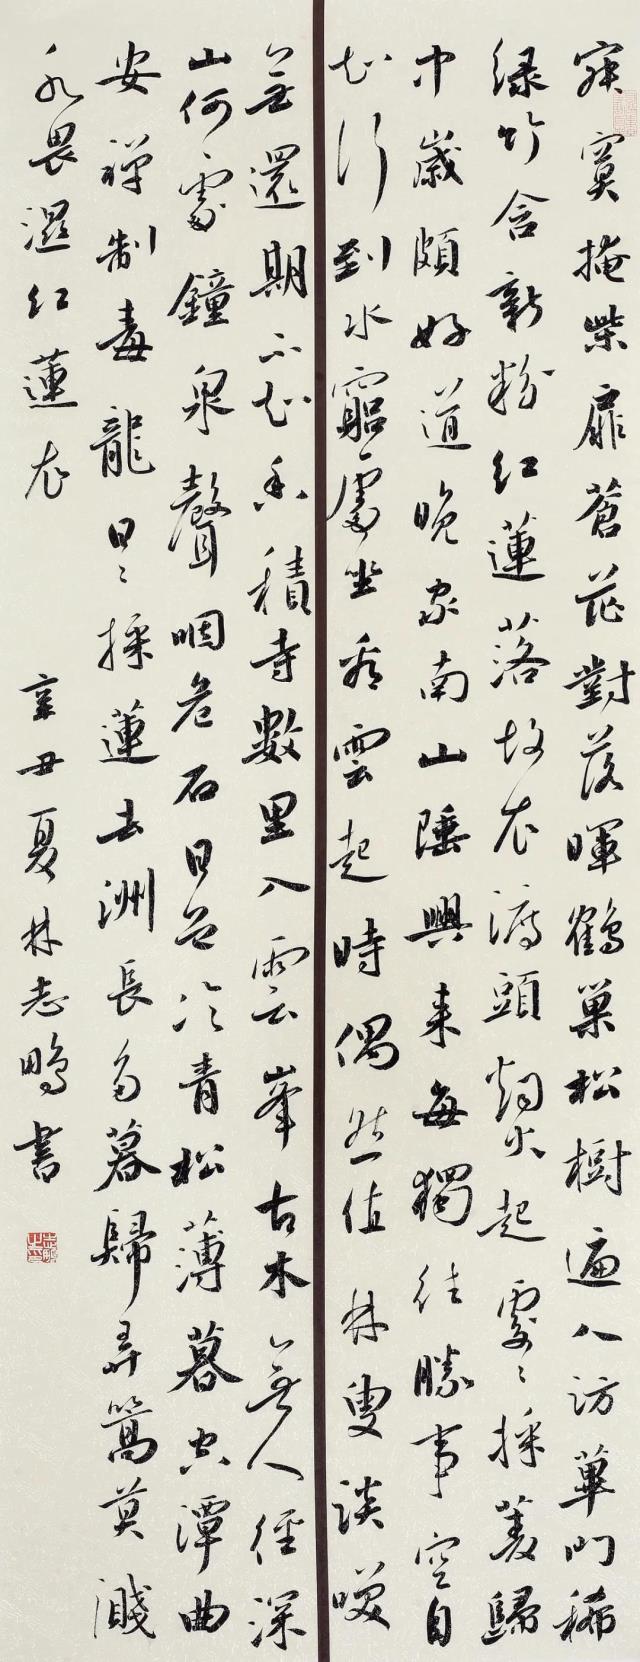 寂寞掩柴扉蒼茫對落暉鶴巢松樹遍人訪蓽門稀
綠竹含新粉紅蓮落故衣渡頭燭火起處〻採菱歸
中歲頗好道晚家南山陲興來每獨往勝事空自
知行到水窮處坐看雲起時偶然值林叟談笑
無還期不知香積寺數里入雲峯古木無人徑深
山何處鐘泉聲咽危石日色冷青松薄暮空潭曲
安禪制毒龍日〻採蓮去洲長多暮歸弄篙莫濺
水畏濕紅蓮衣 辛丑夏林志鵬書